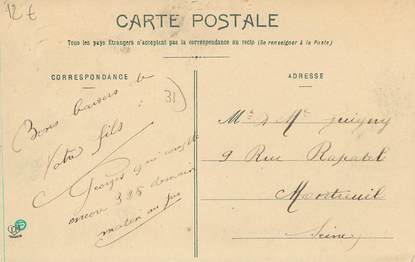 12 €
CARTE POSTALE
Tous les pays Etrangers n'acceptent pas la correspondance au recto (Se renseigner à la Poste)
CORRESPONDANCE
ADRESSE
31
Bons baisers de
Votre fils
Georges qui compte
encore 385 demain
matin au jus
Mr & Me Guigny
9 Rue Rapatel
Montreuil
Seine